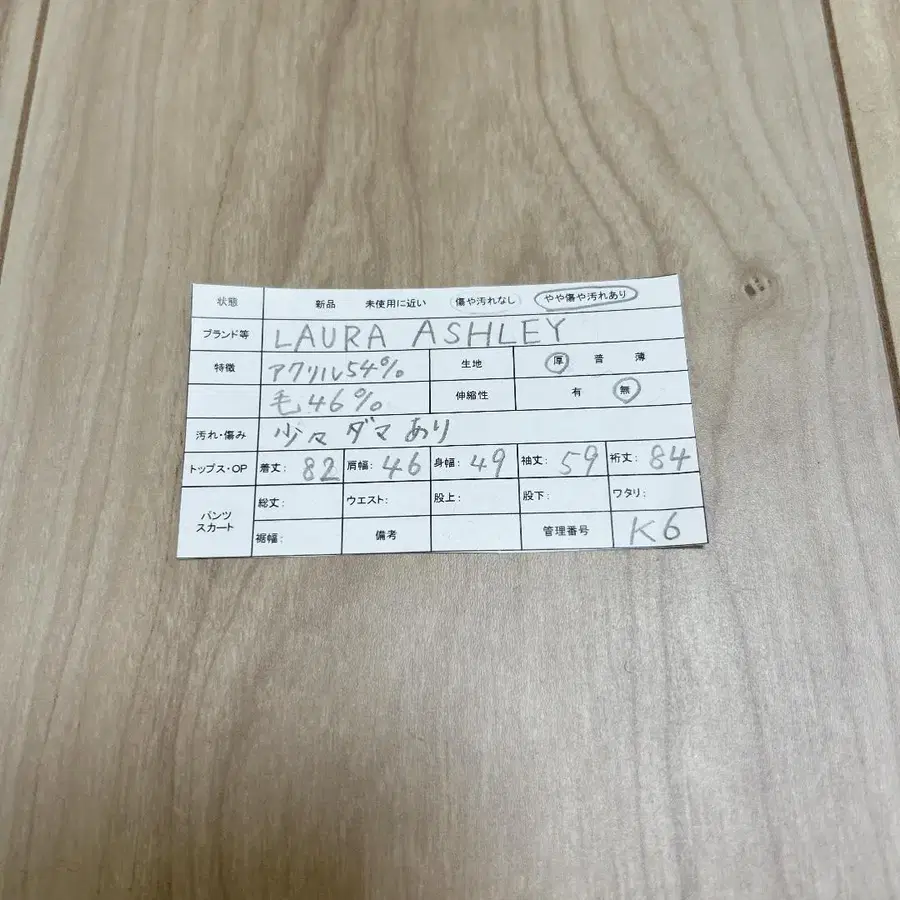 状態 新品 未使用に近い 傷や汚れなし やや傷や汚れあり
ブランド等 LAURA ASHLEY
特徴 アクリル54% 生地 厚 普 薄
毛46% 伸縮性 有 無
汚れ・傷み 少々ダマあり
トップス・OP 着丈: 82 肩幅: 46 身幅: 49 袖丈: 59 裄丈: 84
パンツ スカート 総丈: ウエスト: 股上: 股下: ワタリ:
裾幅: 備考 管理番号 K6